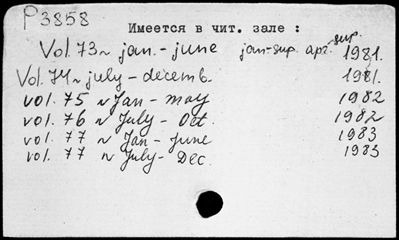 P3858
Имеется в чит. зале :
Vol. 73 ~ jan. - june jan-sup. apr. sup. 1981.
Vol. 74 ~ july - decemb. 1981.
vol. 75 ~ Jan - may 1982
vol. 76 ~ July - Oct. 1982
vol. 77 ~ Jan - june 1983
vol. 77 ~ July - Dec. 1983